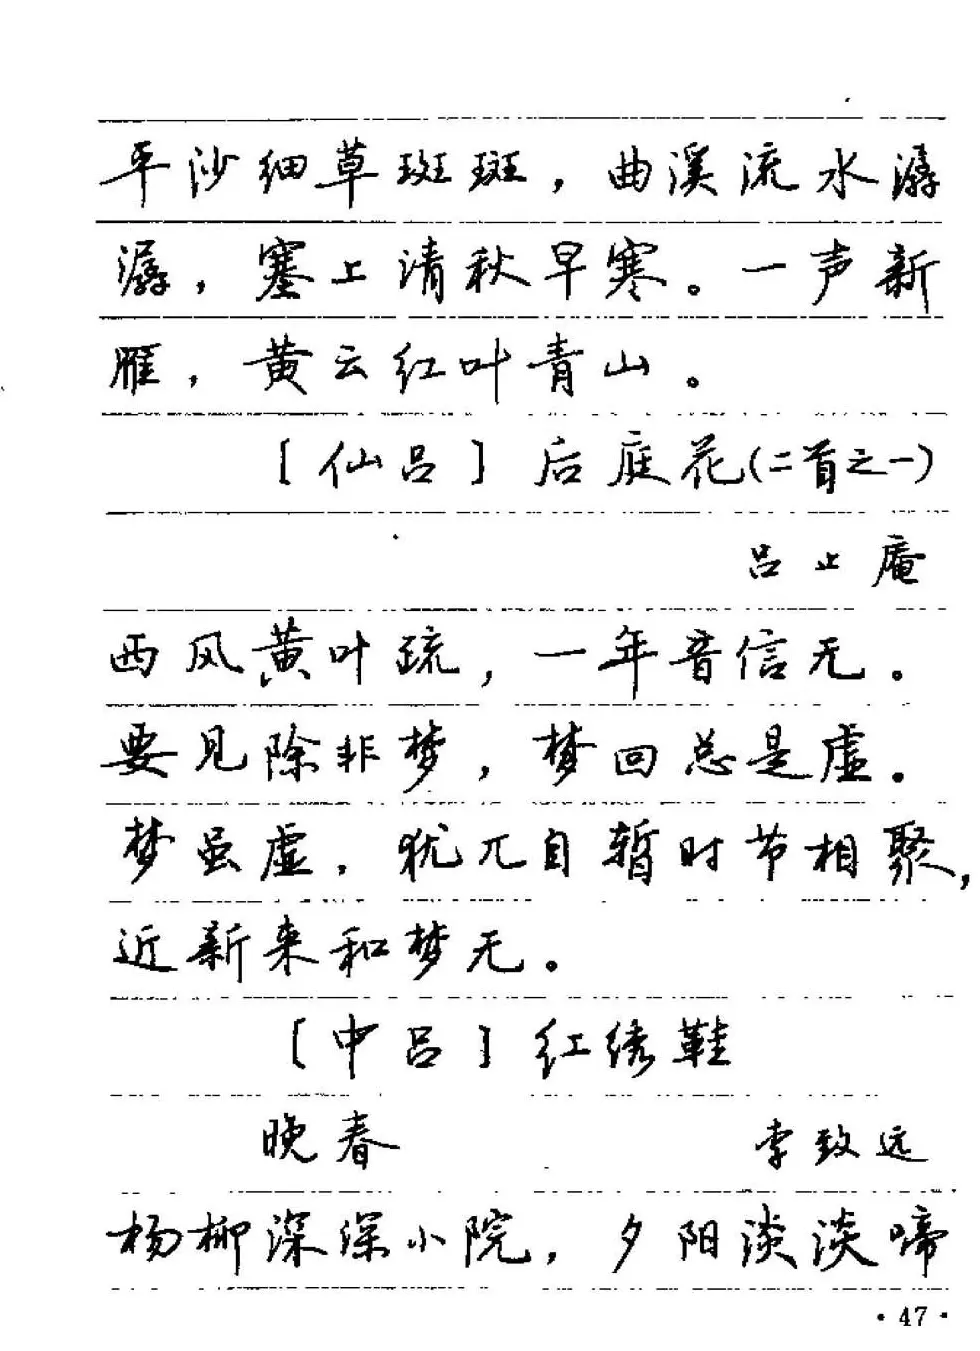 平沙细草斑斑，曲溪流水潺
潺，塞上清秋早寒。一声新
雁，黄云红叶青山。
［仙吕］后庭花(二首之一)
吕止庵
西风黄叶疏，一年音信无。
要见除非梦，梦回总是虚。
梦虽虚，犹兀自暂时节相聚，
近新来和梦无。
［中吕］红绣鞋
晚春 李致远
杨柳深深小院，夕阳淡淡啼
·47·